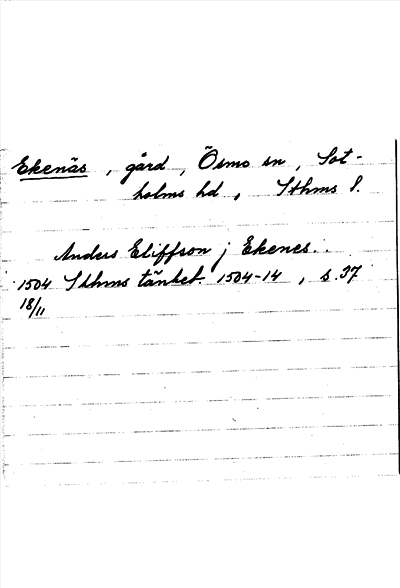 Ekenäs, gård, Ösmo sn, Sot-
holms hd, Sthms l.
Anders Eliffson j Ekenes..
1504 Sthms tänkeb. 1504-14, s. 37
18/11